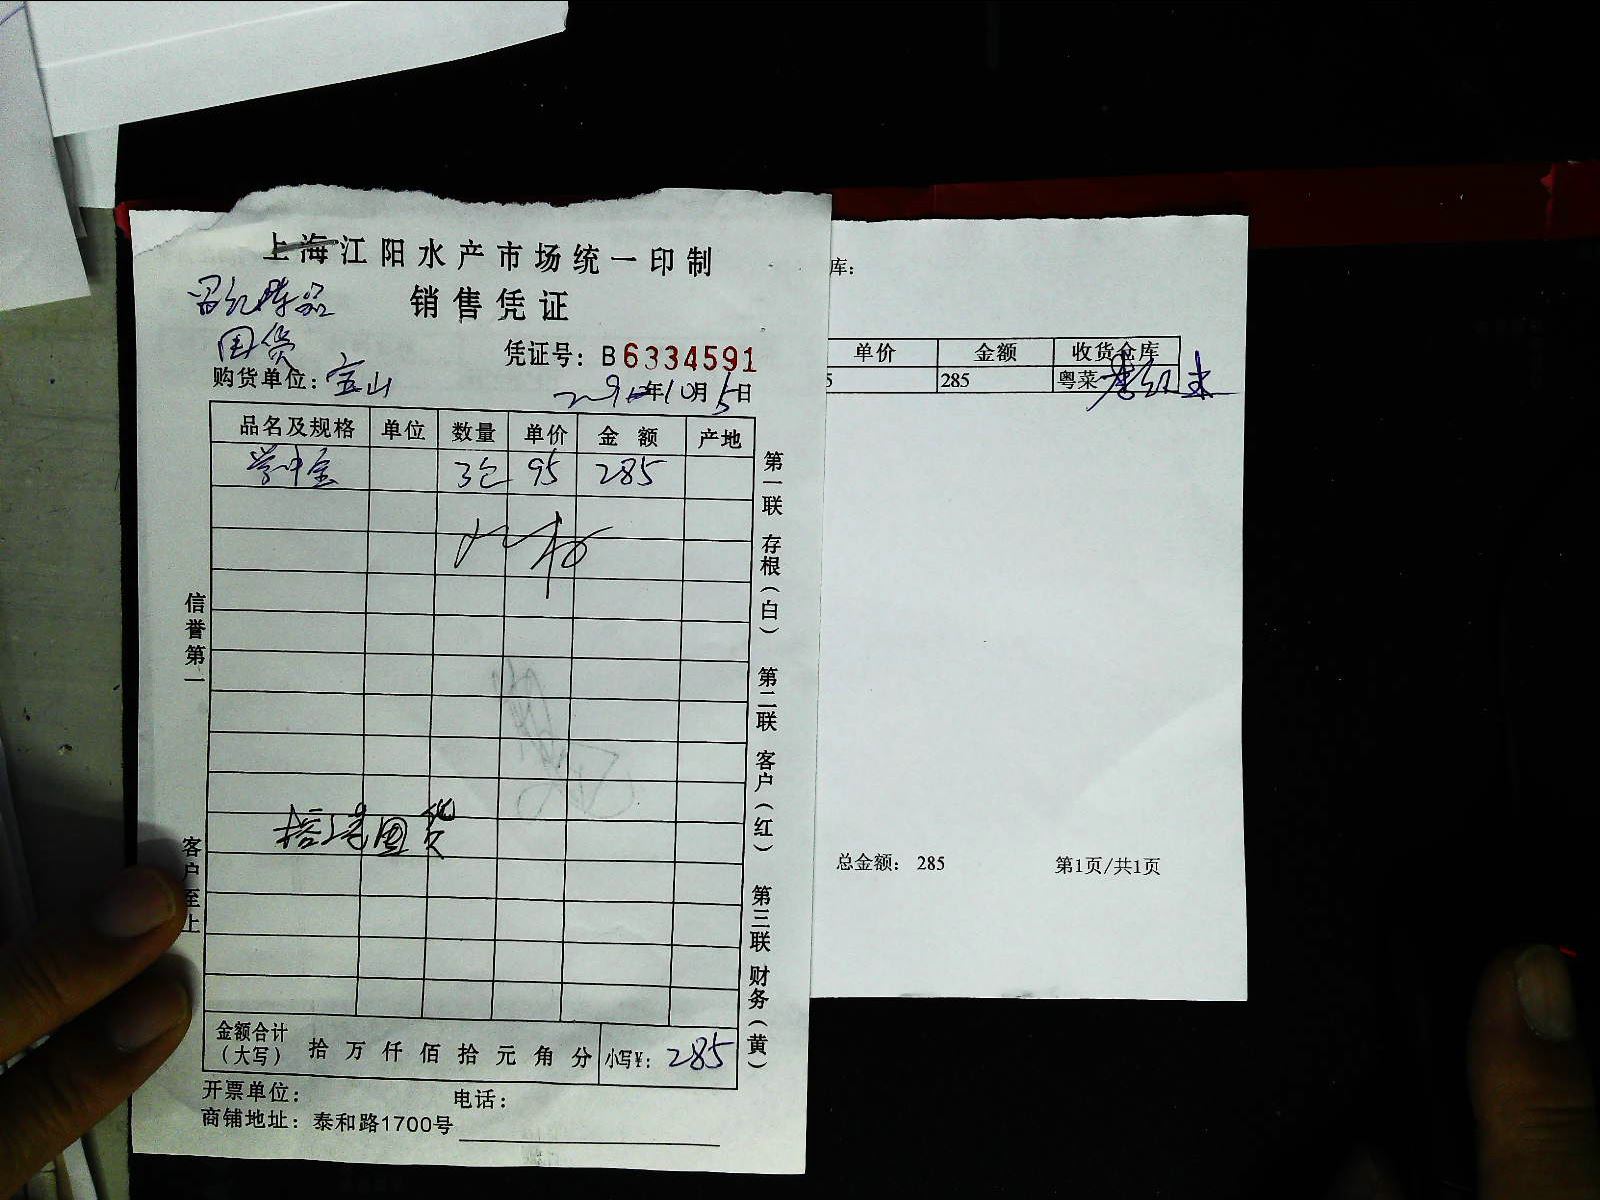 上海江阳水产市场统一印制
销售凭证
凭证号：B6334591
购货单位：宝山
年10月5日
品名及规格 单位 数量 单价 金 额 产地
3包 95 285
信誉第一
客户至上
第一联 存根（白） 第二联 客户（红） 第三联 财务（黄）
退货
金额合计（大写） 拾 万 仟 佰 拾 元 角 分 小写¥：285
开票单位： 电话：
商铺地址：泰和路1700号
库：
单价 金额 收货仓库
5 285 粤菜
总金额：285 第1页/共1页